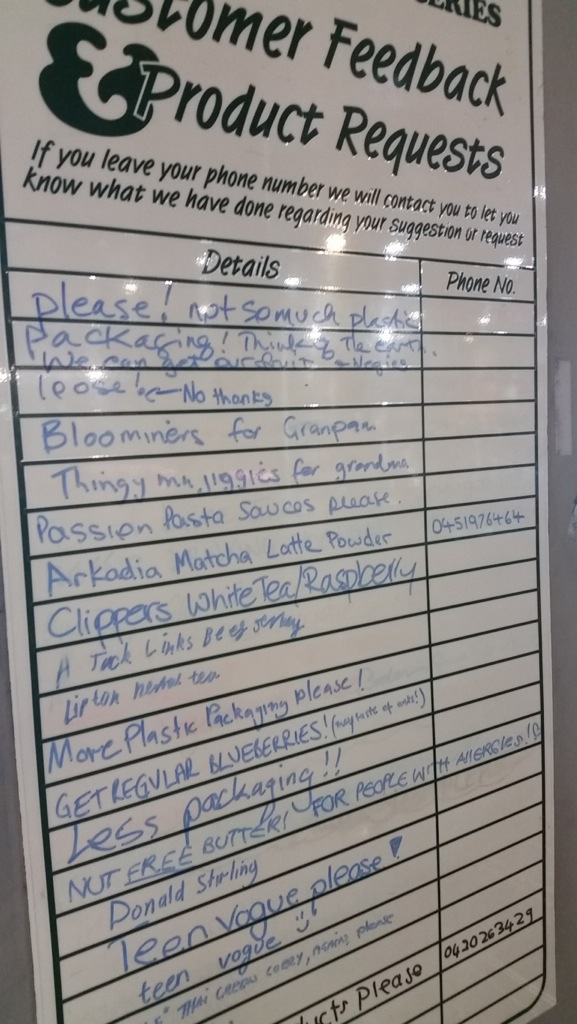 Customer Feedback
& Product Requests
If you leave your phone number we will contact you to let you
know what we have done regarding your suggestion or request
Details
Phone No.
please! not so much plastic
Packaging! Think of the earth.
We can get our fruit
loose! ← No thanks
Bloominers for Granpaa
Thingy ma jiggies for grandma
Passion Pasta Sauces please.
Arkadia Matcha Latte Powder
0451976464
Clippers White Tea/Raspberry
A Jack Links Beef Jerky
Lipton herbal tea
More Plastic Packaging please!
GET REGULAR BLUEBERRIES! (they taste of
Less packaging!!
NUT FREE BUTTER! FOR PEOPLE WITH AllERGIES!!
Donald Stirling
Teen vogue please!
teen vogue
THAI GREEN CURRY, please
please
0420263429